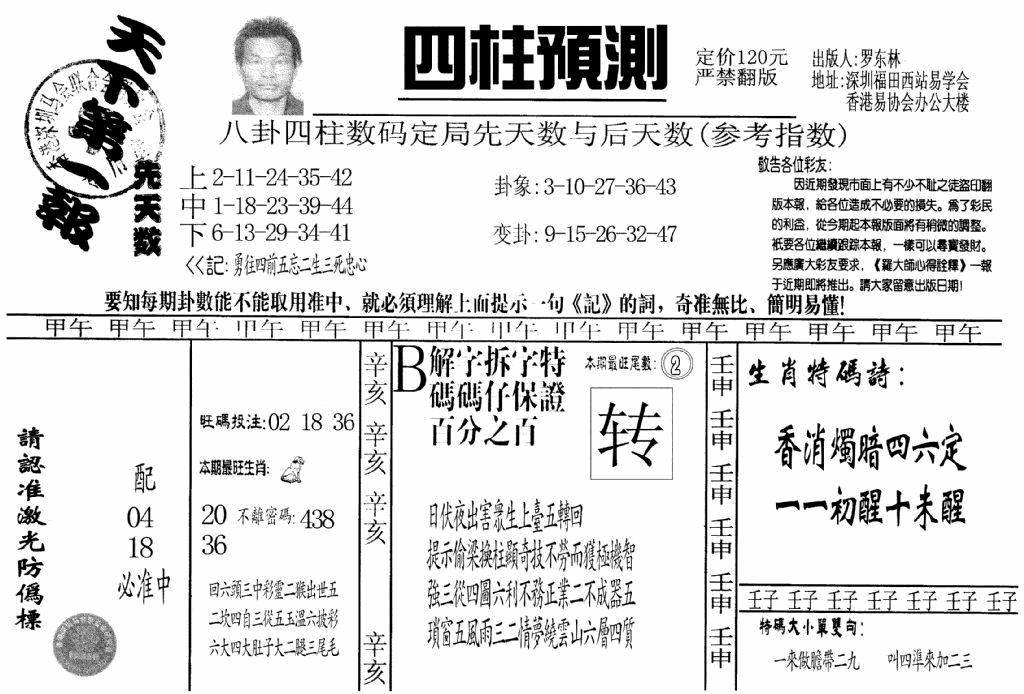 天下第一報
四柱預測
定价120元
严禁翻版
出版人:罗东林
地址:深圳福田西站易学会
香港易协会办公大楼
八卦四柱数码定局先天数与后天数(参考指数)
先天数
上 2-11-24-35-42
中 1-18-23-39-44
下 6-13-29-34-41
卦象:3-10-27-36-43
变卦:9-15-26-32-47
<<記:勇往四前五忘二生三死忠心
敬告各位彩友:
因近期發現市面上有不少不恥之徒盜印翻
版本報,給各位造成不必要的損失。為了彩民
的利益,從今期起本報版面將有稍微的調整。
衹要各位繼續跟踪本報,一樣可以尋寶發財。
另應廣大彩友要求,《羅大師心得詮釋》一報
于近期即將推出。請大家留意出版日期!
要知每期卦數能不能取用准中、就必須理解上面提示一句《記》的詞,奇准無比、簡明易懂!
甲午 甲午 甲午 甲午 甲午 甲午 甲午 甲午 甲午 甲午 甲午 甲午 甲午 甲午 甲午
請認准激光防僞標
配
04
18
必准中
旺碼投注:02 18 36
本期最旺生肖:
20 不離密碼:438
36
回六頭三中彩靈二猴出世五
二坎四自三從五玉溫六披彩
六大四大肚子大二腿三尾毛
辛亥 辛亥 辛亥 辛亥
B解字拆字特
碼碼仔保證
百分之百
本期最旺尾數:2
转
日伏夜出害衆生上臺五轉回
提示偷梁換柱顯奇技不勞而獲極機智
強三從四圖六利不務正業二不成器五
瑣窗五風雨三二情夢繞雲山六層四質
壬申 壬申 壬申 壬申 壬申 壬申
生肖特碼詩:
香消燭暗四六定
一一初醒十未醒
壬子 壬子 壬子 壬子 壬子 壬子 壬子
特碼大小單雙句:
一來做膽帶二九 叫四準來加二三